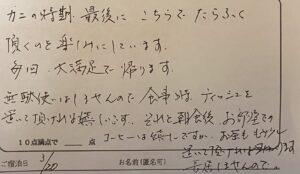 カニの時期 最後に こちらで たらふく
頂くのを楽しみにしています。
毎回、大満足で帰ります。
無駄使いはしませんので 食事時 ティッシュを
置いて頂ければ嬉しいです。それと朝食後 お部屋での
コーヒーは嬉しいですが、お茶も
置いて頂ければ
長居しませんので。
10点満点で 点
ご宿泊日 3/20 お名前(匿名可)